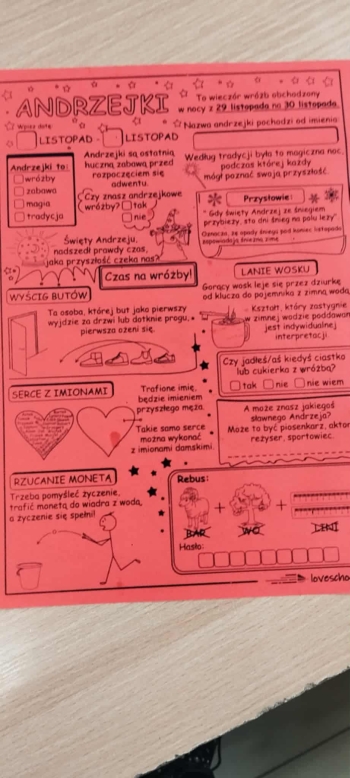 ANDRZEJKI
To wieczór wróżb obchodzony
w nocy z 29 listopada na 30 listopada.
Wpisz datę:
LISTOPAD - LISTOPAD
Nazwa andrzejki pochodzi od imienia:
Andrzejki to:
wróżby
zabawa
magia
tradycja
Andrzejki są ostatnią
huczną zabawą przed
rozpoczęciem się
adwentu.
Czy znasz andrzejkowe
wróżby? tak
nie
Według tradycji była to magiczna noc,
podczas której każdy
mógł poznać swoją przyszłość.
Przysłowie:
"Gdy święty Andrzej ze śniegiem
przybieży, sto dni śnieg na polu leży"
Oznacza, że opady śniegu pod koniec listopada
zapowiadają śnieżną zimę.
Święty Andrzeju,
nadszedł prawdy czas,
jaka przyszłość czeka nas?
Czas na wróżby!
WYŚCIG BUTÓW
Ta osoba, której but jako pierwszy
wyjdzie za drzwi lub dotknie progu,
pierwsza ożeni się.
LANIE WOSKU
Gorący wosk leje się przez dziurkę
od klucza do pojemnika z zimną wodą.
Kształt, który zastygnie
w zimnej wodzie poddawany
jest indywidualnej
interpretacji.
Czy jadłeś/aś kiedyś ciastko
lub cukierka z wróżbą?
tak nie nie wiem
SERCE Z IMIONAMI
Trafione imię,
będzie imieniem
przyszłego męża.
Takie samo serce
można wykonać
z imionami damskimi.
A może znasz jakiegoś
sławnego Andrzeja?
Może to być piosenkarz, aktor,
reżyser, sportowiec.
RZUCANIE MONETĄ
Trzeba pomyśleć życzenie,
trafić monetą do wiadra z wodą,
a życzenie się spełni!
Rebus:
+ +
BAR WO LINI
Hasło:
lovescho